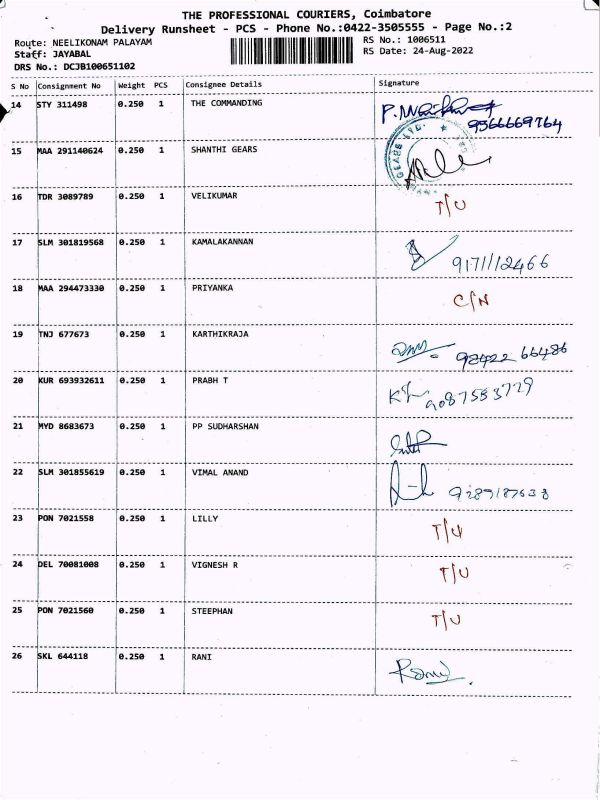 THE PROFESSIONAL COURIERS, Coimbatore
Delivery Runsheet - PCS - Phone No.:0422-3505555 - Page No.:2
Route: NEELIKONAM PALAYAM
RS No.: 1006511
Staff: JAYABAL
RS Date: 24-Aug-2022
DRS No.: DCJB100651102
S No Consignment No Weight PCS Consignee Details Signature
14 STY 311498 0.250 1 THE COMMANDING
9566669764
15 MAA 291140624 0.250 1 SHANTHI GEARS
16 TDR 3089789 0.250 1 VELIKUMAR T/U
17 SLM 301819568 0.250 1 KAMALAKANNAN 9171112466
18 MAA 294473330 0.250 1 PRIYANKA C/N
19 TNJ 677673 0.250 1 KARTHIKRAJA 98422 66486
20 KUR 693932611 0.250 1 PRABH T 9087583729
21 MYD 8683673 0.250 1 PP SUDHARSHAN
22 SLM 301855619 0.250 1 VIMAL ANAND
23 PON 7021558 0.250 1 LILLY T/U
24 DEL 70081008 0.250 1 VIGNESH R T/U
25 PON 7021560 0.250 1 STEEPHAN T/U
26 SKL 644118 0.250 1 RANI Rani